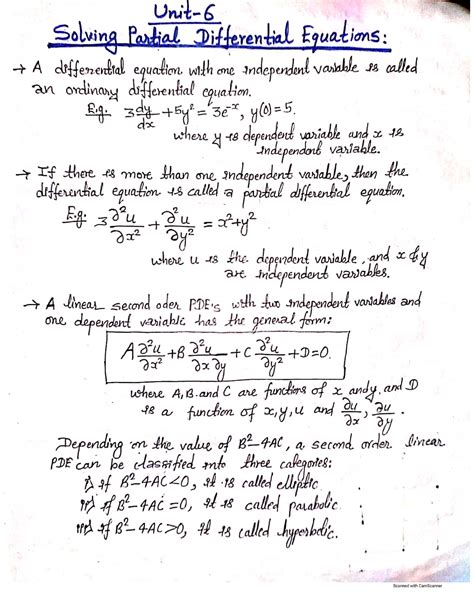 Unit-6
Solving Partial Differential Equations:
→ A differential equation with one independent variable is called
an ordinary differential equation.
E.g. 3 dy/dx + 5y² = 3e⁻ˣ, y(0) = 5.
where y is dependent variable and x is
independent variable.
→ If there is more than one independent variable, then the
differential equation is called a partial differential equation.
E.g: 3 ∂²u/∂x² + ∂²u/∂y² = x²+y²
where u is the dependent variable, and x & y
are independent variables.
→ A linear second oder PDE's with two independent variables and
one dependent variable has the general form:
A ∂²u/∂x² + B ∂²u/∂x ∂y + C ∂²u/∂y² + D = 0.
where A, B and C are functions of x and y, and D
is a function of x, y, u and ∂u/∂x, ∂u/∂y.
Depending on the value of B²-4AC, a second order linear
PDE can be classified into three categories:
i) if B²-4AC<0, it is called elliptic.
ii) if B²-4AC=0, it is called parabolic.
iii) if B²-4AC>0, it is called hyperbolic.
Scanned with CamScanner